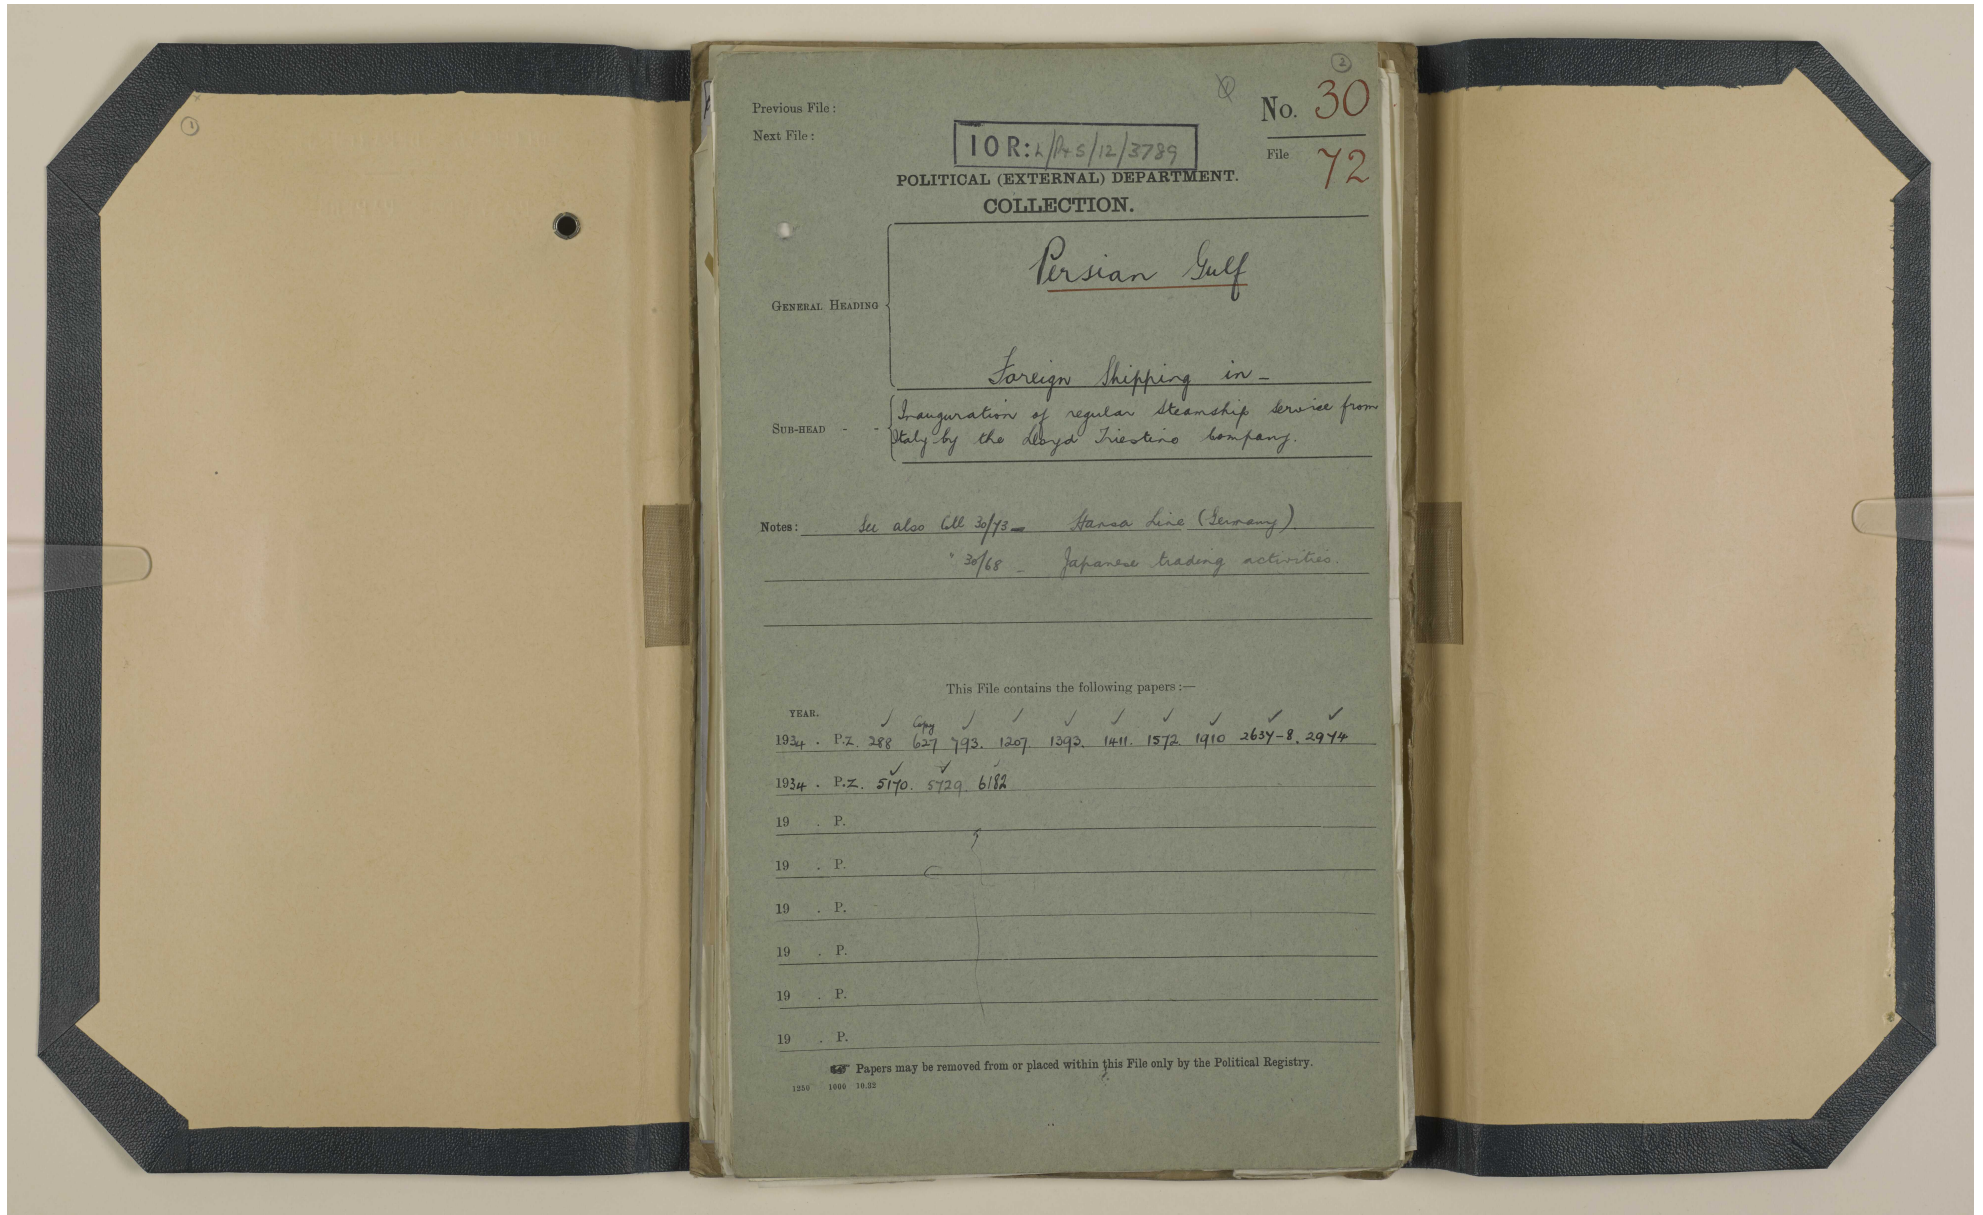 1
2
Previous File :
Next File :
IOR: L/P+S/12/3789
No. 30
File 72
POLITICAL (EXTERNAL) DEPARTMENT.
COLLECTION.
GENERAL HEADING
Persian Gulf
Foreign Shipping in –
SUB-HEAD - -
Inauguration of regular steamship service from
Italy by the Lloyd Triestino Company.
Notes: See also Coll 30/73 – Hansa Line (Germany)
" 30/68 – Japanese trading activities.
This File contains the following papers :—
YEAR.
Copy
1934 . P.Z. 288 627 793. 1207. 1393. 1411. 1572. 1910 2637-8. 2974
1934 . P.Z. 5170. 5729. 6182
19 . P.
19 . P.
19 . P.
19 . P.
19 . P.
19 . P.
☞ Papers may be removed from or placed within this File only by the Political Registry.
1250 1000 10.32